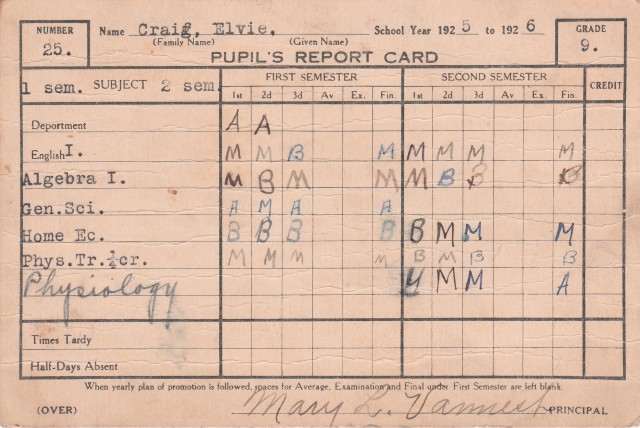 NUMBER 25. Name Craig, Elvie. School Year 1925 to 1926 GRADE 9.
(Family Name) (Given Name)
PUPIL'S REPORT CARD
1 sem. SUBJECT 2 sem. FIRST SEMESTER SECOND SEMESTER CREDIT
1st 2d 3d Av Ex. Fin. 1st 2d 3d Av Ex. Fin.
Department A A
English I. M M B M M M M M
Algebra I. M B M M M B B B
Gen.Sci. A M A A
Home Ec. B B B B B M M M
Phys.Tr.½cr. M M M M B M B B
Physiology M M A
Times Tardy
Half-Days Absent
When yearly plan of promotion is followed, spaces for Average, Examination and Final under First Semester are left blank.
(OVER) Mary L. Vannest PRINCIPAL